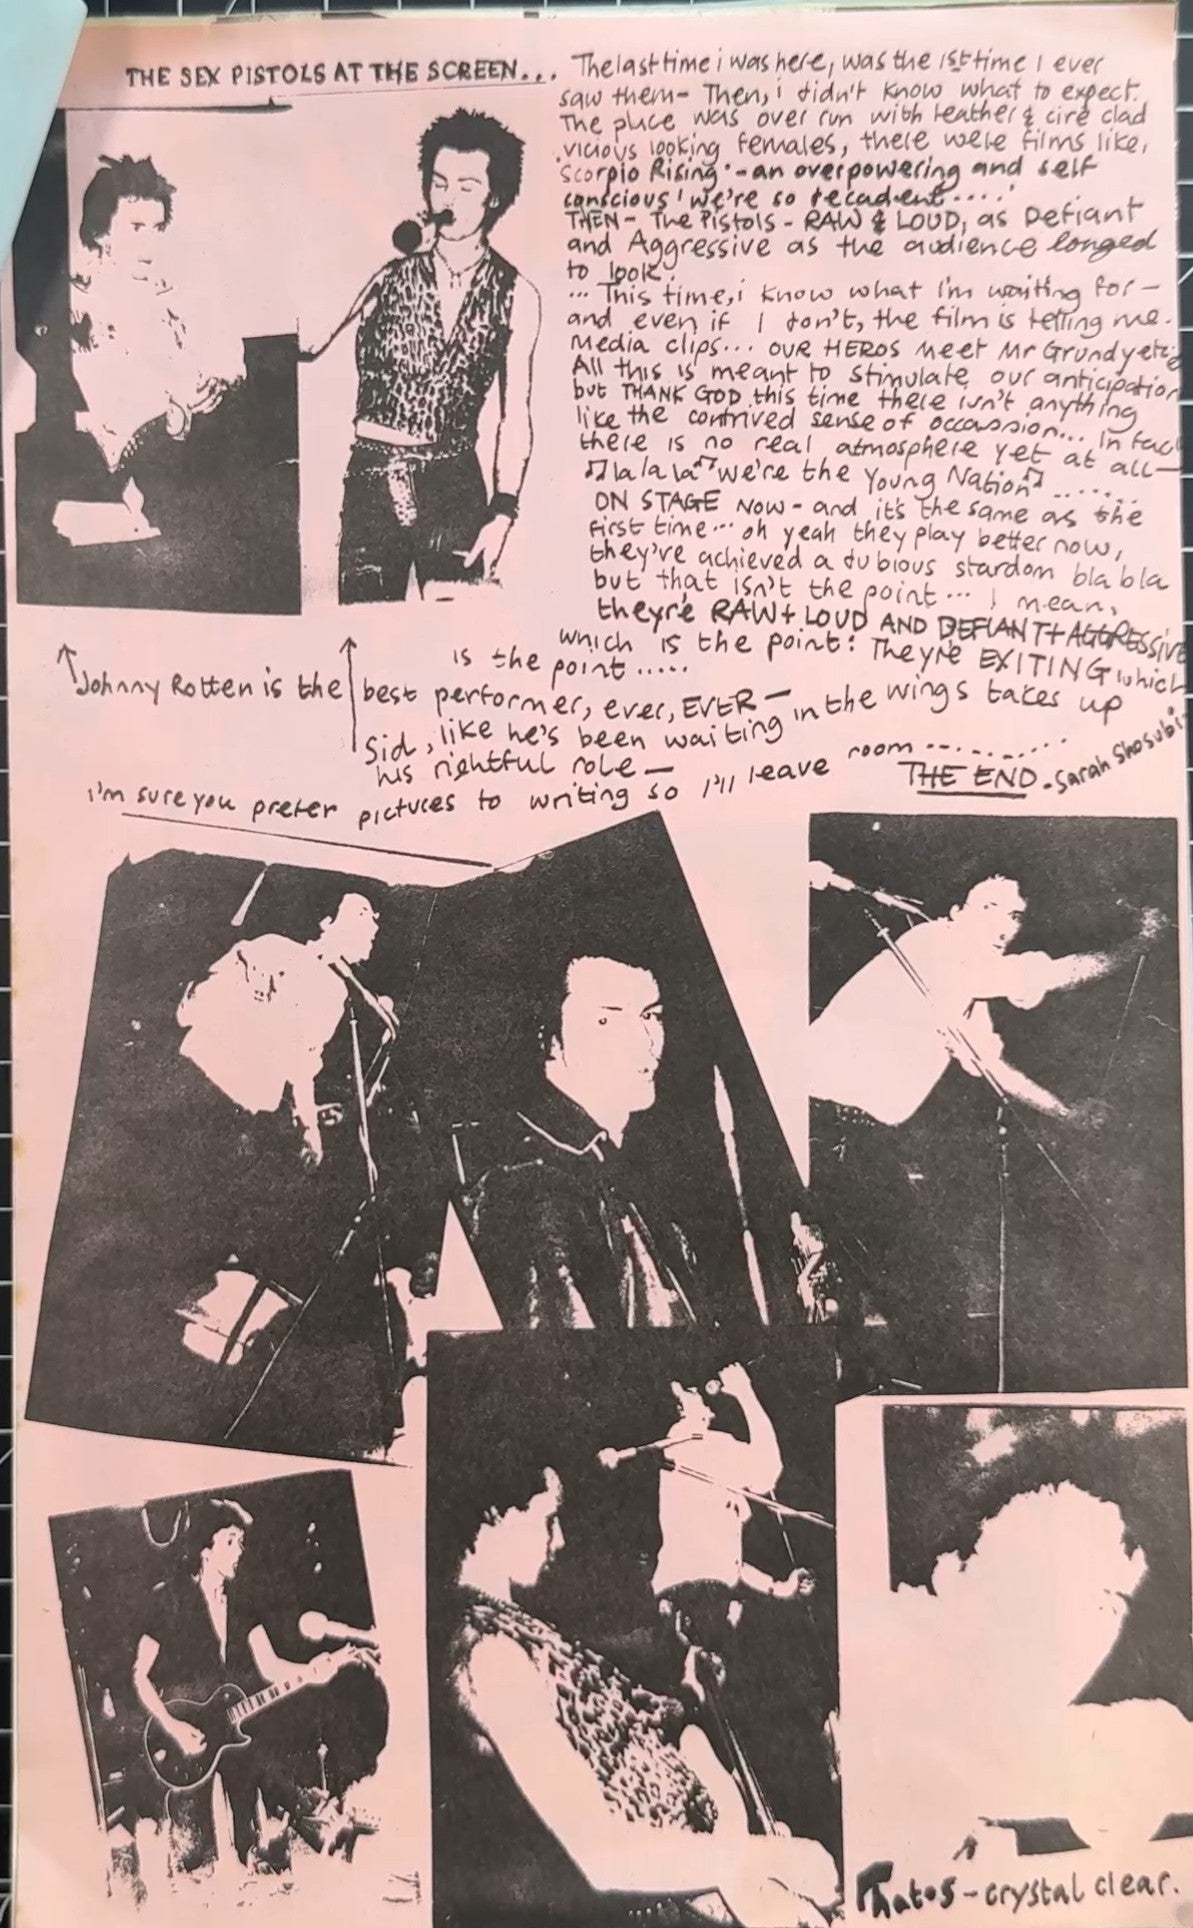 THE SEX PISTOLS AT THE SCREEN... The last time i was here, was the 1st time I ever
saw them - Then, i didn't know what to expect.
The place was over run with leather & ciré clad
vicious looking females, there were films like,
Scorpio Rising - an overpowering and self
conscious 'we're so decadent....'
THEN - The Pistols - RAW & LOUD, as Defiant
and Aggressive as the audience longed
to look.
... This time, i know what I'm waiting for -
and even if I don't, the film is telling me.
Media clips... OUR HEROS Meet Mr Grundy etc
All this is meant to stimulate our anticipation
but THANK GOD this time there isn't anything
like the contrived sense of occassion... In fact
there is no real atmosphere yet at all -
♫ la la la ♫ we're the Young Nation ♫ .......
ON STAGE NOW - and it's the same as the
first time... oh yeah they play better now,
they've achieved a dubious stardom bla bla
but that isn't the point... I mean,
they're RAW + LOUD AND DEFIANT + AGGRESSIVE
which is the point: They're EXITING which
is the point.....
Johnny Rotten is the best performer, ever, EVER -
Sid, like he's been waiting in the wings takes up
his rightful role -
I'm sure you prefer pictures to writing so I'll leave room ..........
THE END - Sarah Shosubi
Photos - crystal clear.